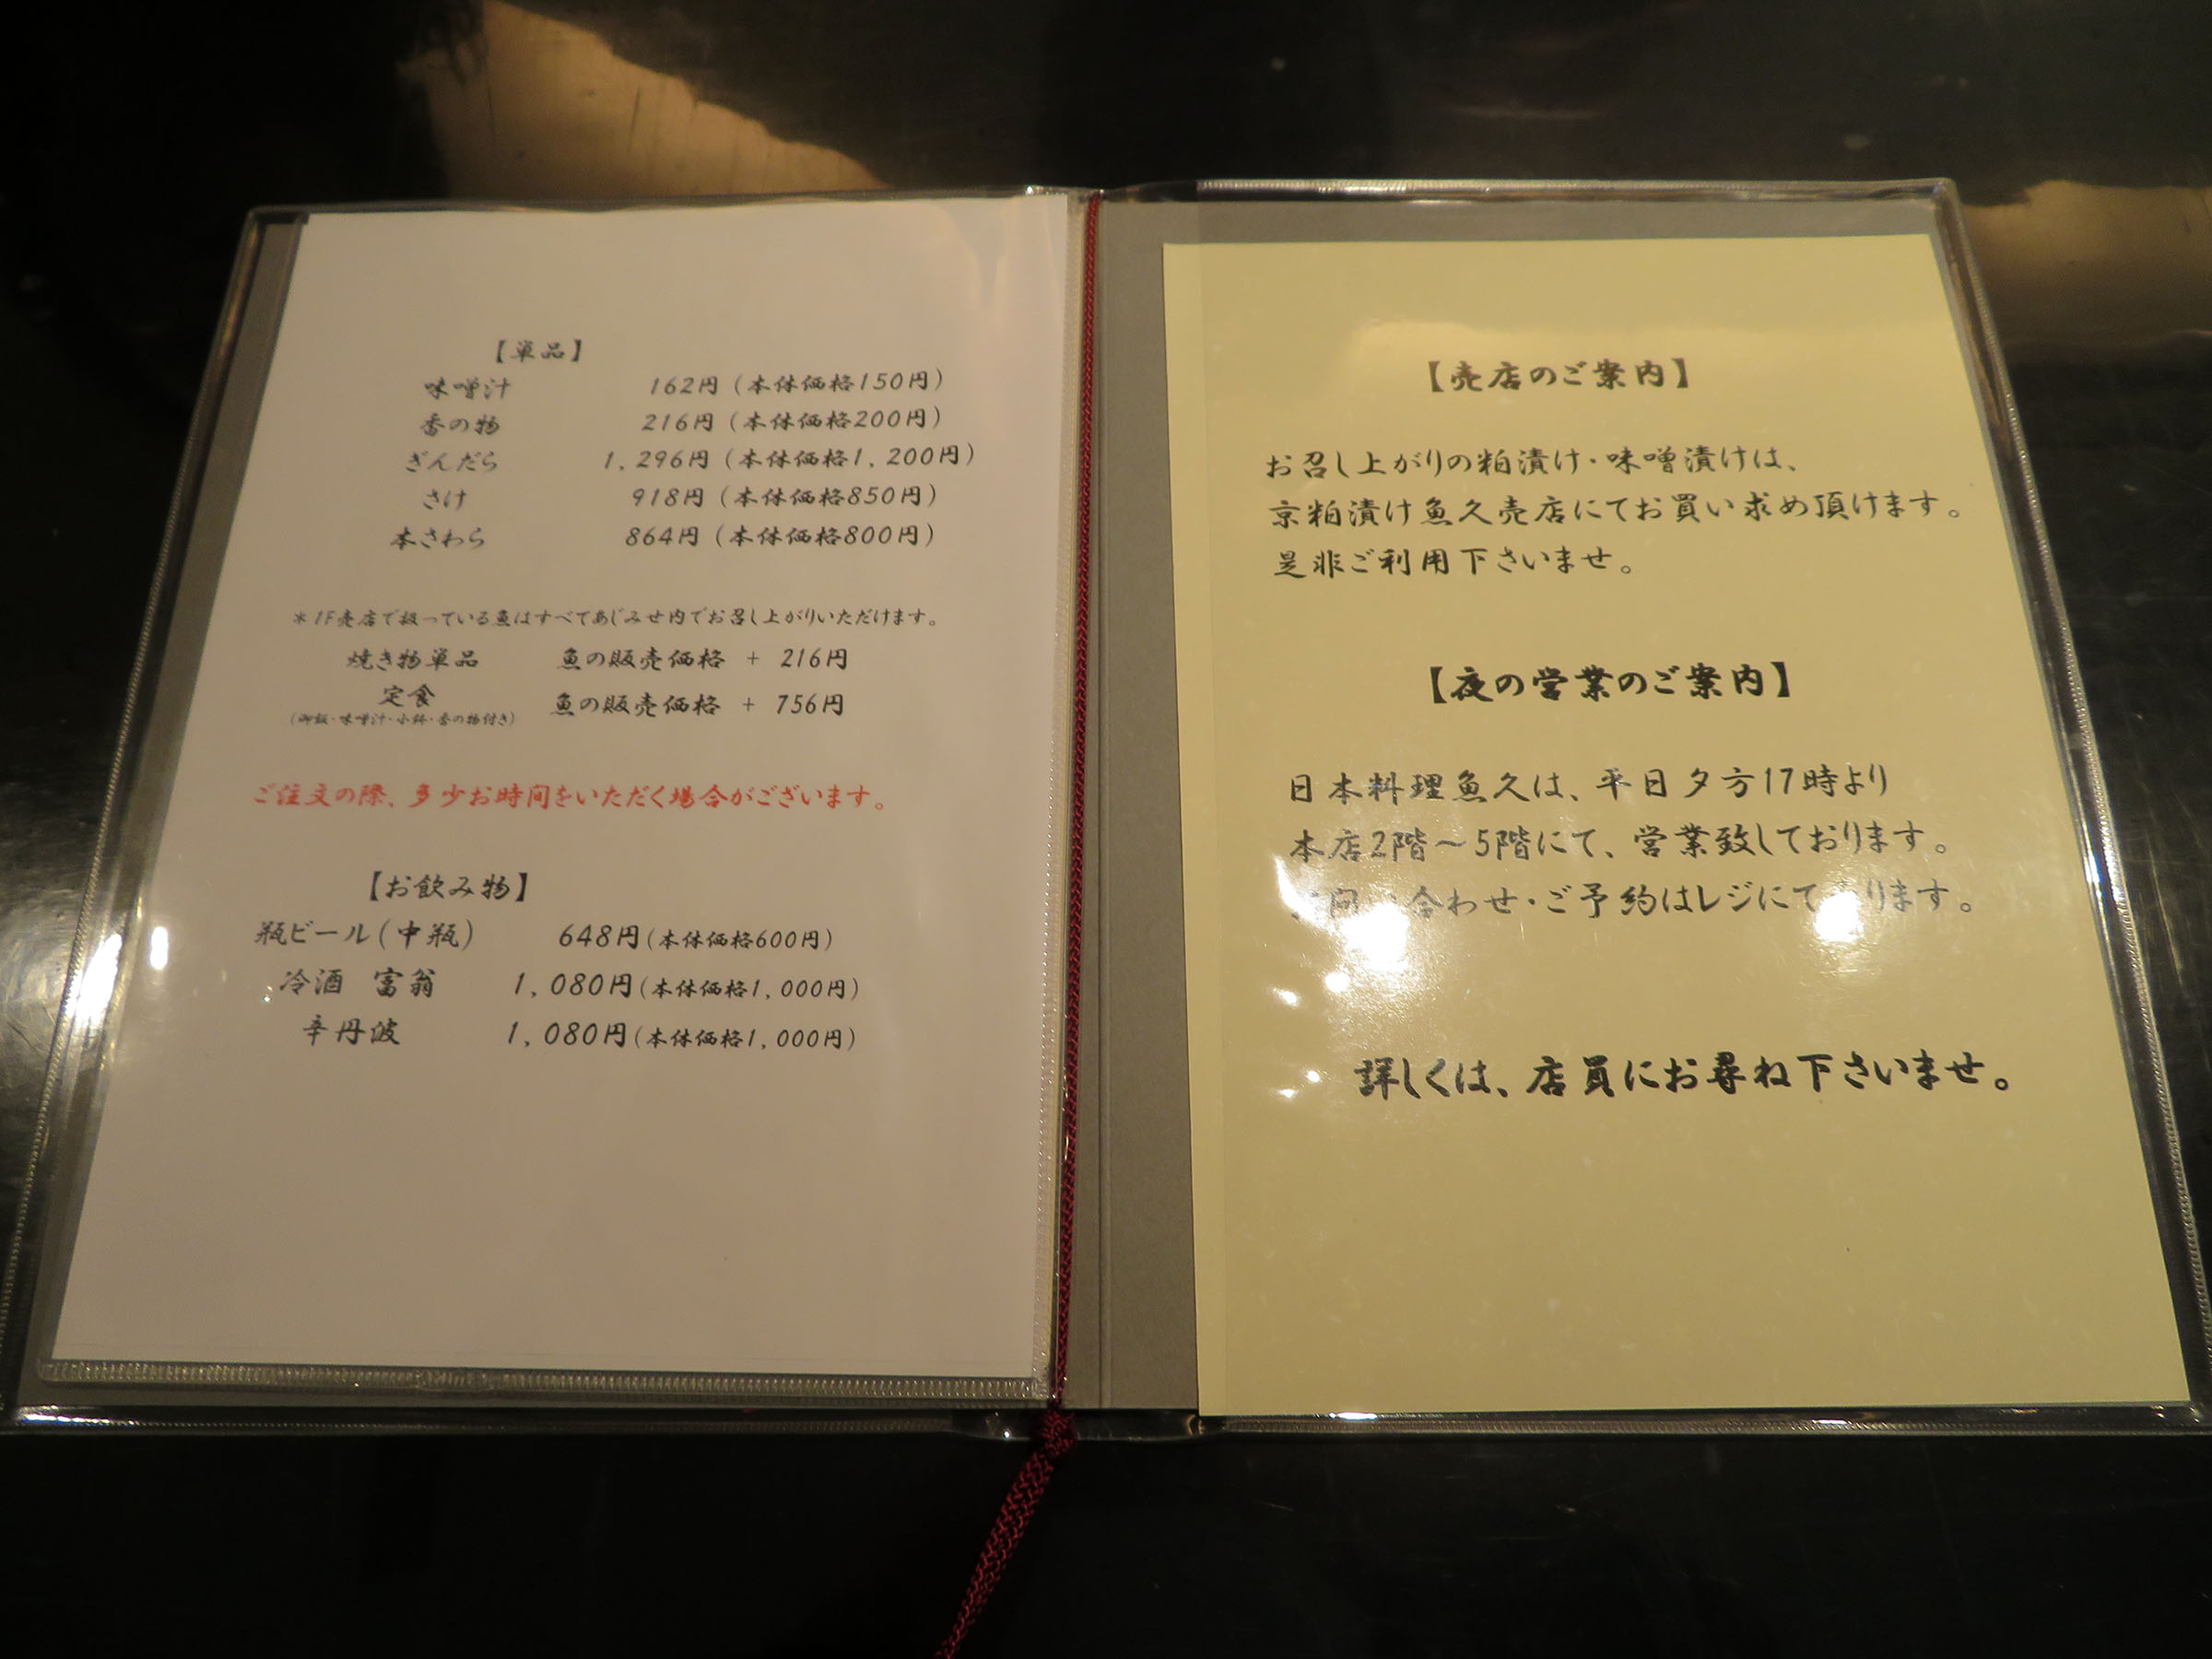 【単品】
味噌汁 162円(本体価格150円)
香の物 216円(本体価格200円)
ぎんだら 1,296円(本体価格1,200円)
さけ 918円(本体価格850円)
本さわら 864円(本体価格800円)
*1F売店で扱っている魚はすべてあじみせ内でお召し上がりいただけます。
焼き物単品 魚の販売価格 + 216円
定食 魚の販売価格 + 756円
(御飯・味噌汁・小鉢・香の物付き)
ご注文の際、多少お時間をいただく場合がございます。
【お飲み物】
瓶ビール(中瓶) 648円(本体価格600円)
冷酒 富翁 1,080円(本体価格1,000円)
辛丹波 1,080円(本体価格1,000円)
【売店のご案内】
お召し上がりの粕漬け・味噌漬けは、
京粕漬け魚久売店にてお買い求め頂けます。
是非ご利用下さいませ。
【夜の営業のご案内】
日本料理魚久は、平日夕方17時より
本店2階~5階にて、営業致しております。
合わせ・ご予約はレジにて ります。
詳しくは、店員にお尋ね下さいませ。